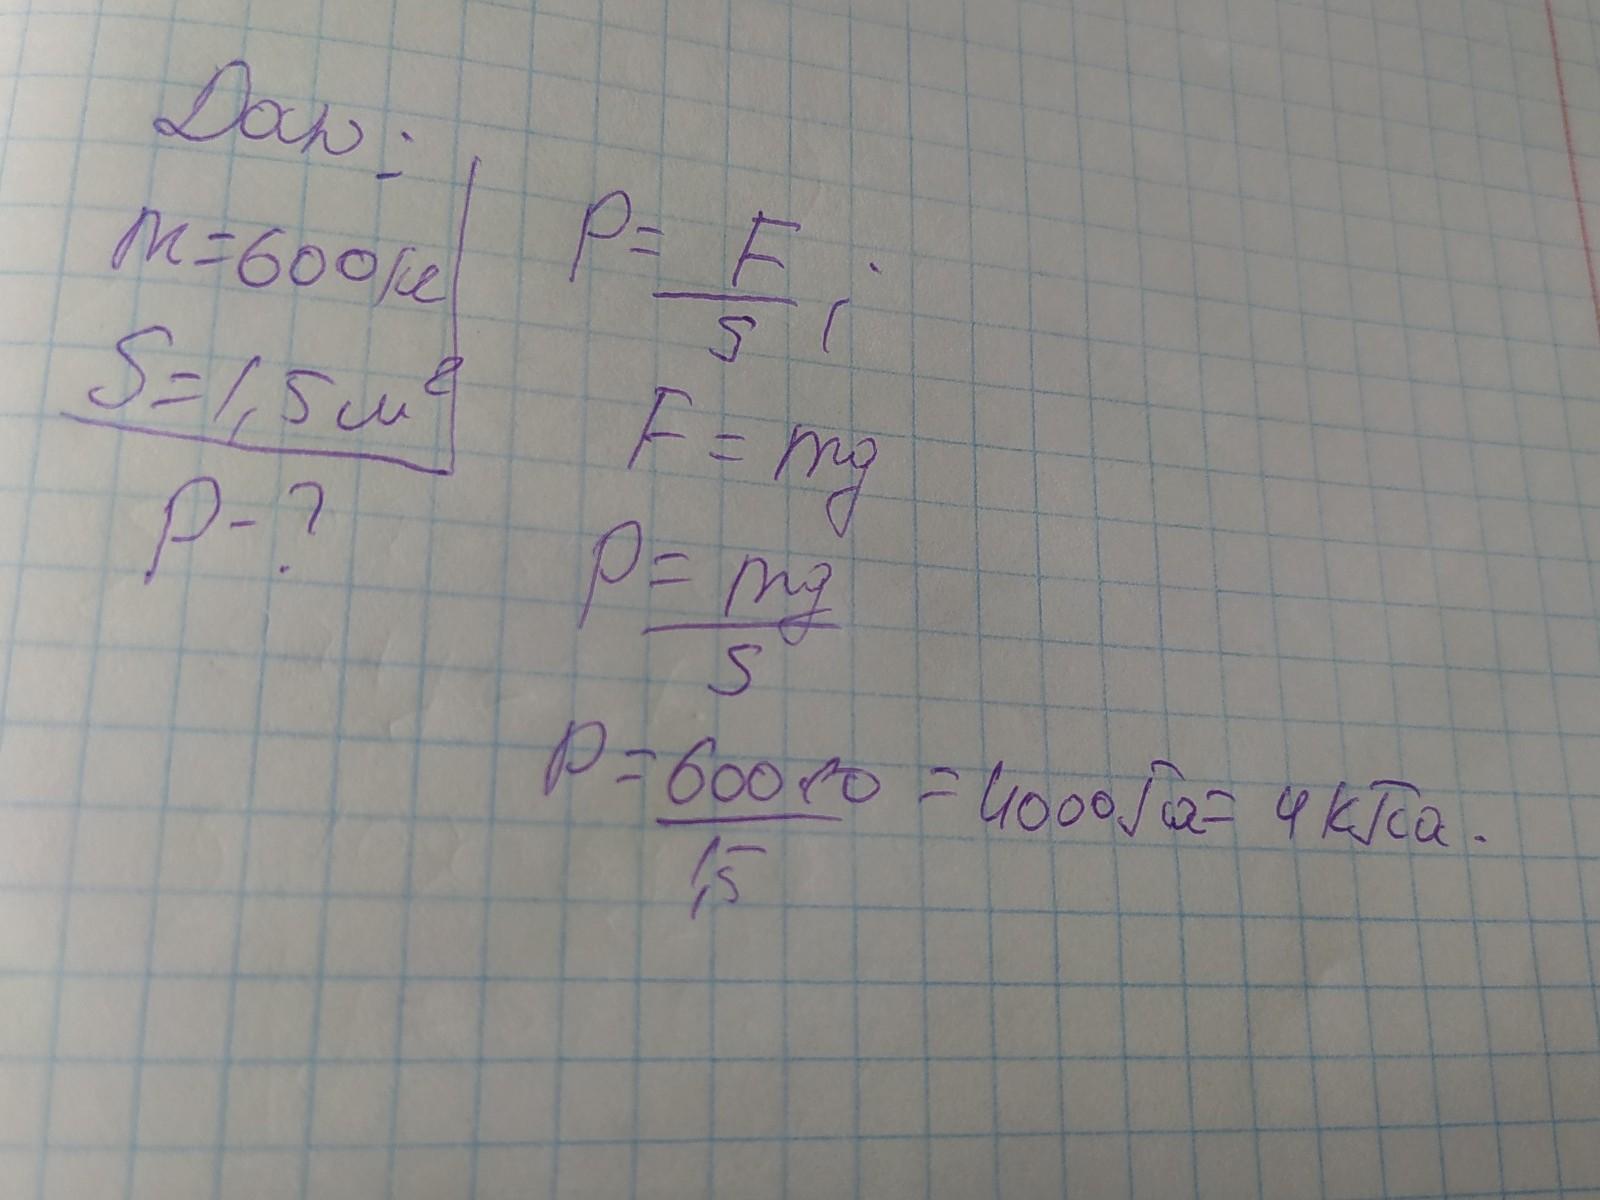 Дано:
m=600кг
S=1,5м²
P-?
P= F/S ;
F = mg
P= mg/S
P= 600·10/1,5 = 4000Па= 4кПа.